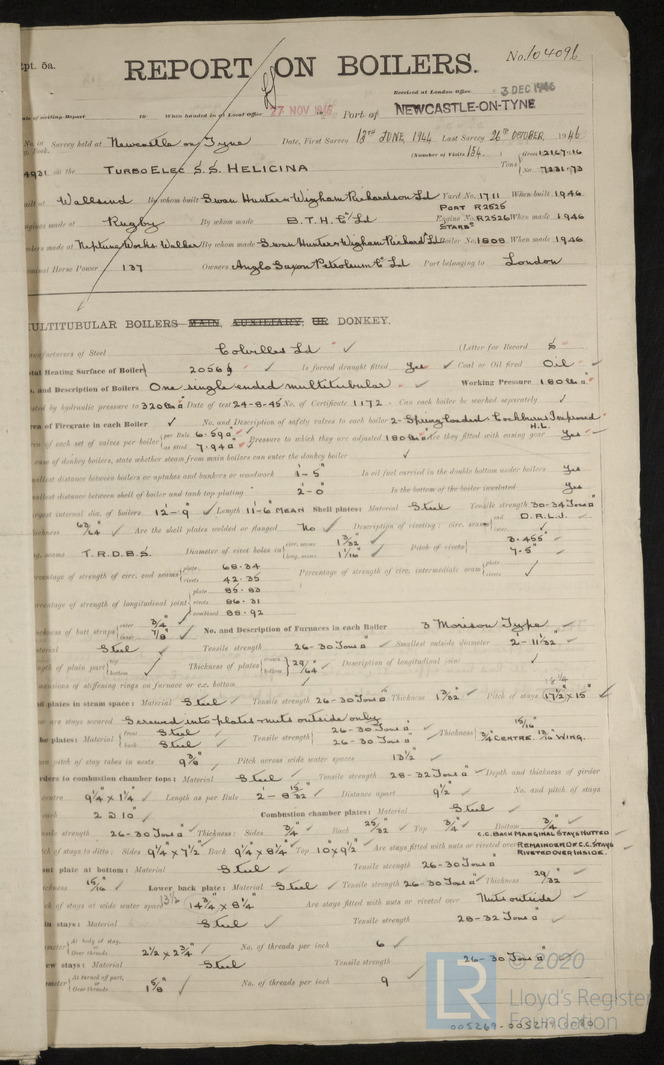 Rpt. 5a.
No. 104096
REPORT ON BOILERS.
Received at London Office 3 DEC 1946
When handed in at Local Office 27 NOV 1946 Port of NEWCASTLE-ON-TYNE
Survey held at Newcastle on Tyne Date, First Survey 13TH JUNE, 1944 Last Survey 26th OCTOBER 1946
(Number of Visits 154 ) Tons Gross 12167.16 Net 7231.73
on the TURBO ELEC S.S. HELICINA
Built at Wallsend By whom built Swan Hunter & Wigham Richardson Ld Yard No. 1711 When built 1946
Engines made at Rugby By whom made B.T.H. Co Ld Engine No. PORT R2525 STARB R2526 When made 1946
Boilers made at Neptune Works Walker By whom made Swan Hunter & Wigham Richard Ld Boiler No. 1808 When made 1946
Nominal Horse Power 137 Owners Anglo Saxon Petroleum Co Ld Port belonging to London
MULTITUBULAR BOILERS MAIN, AUXILIARY, OR DONKEY.
Manufacturers of Steel Colvilles Ld (Letter for Record S
Total Heating Surface of Boilers 2056 Is forced draught fitted Yes Coal or Oil fired Oil
No. and Description of Boilers One single ended multitubular Working Pressure 180 lbs
Tested by hydraulic pressure to 320 lbs Date of test 24-8-45 No. of Certificate 1172 Can each boiler be worked separately
Area of Firegrate in each Boiler No. and Description of safety valves to each boiler 2- Spring loaded - Cockburns Improved H.L.
Area of each set of valves per boiler per Rule 6.59 as fitted 7.94 Pressure to which they are adjusted 180 lbs Are they fitted with easing gear Yes
In case of donkey boilers, state whether steam from main boilers can enter the donkey boiler
Smallest distance between boilers or uptakes and bunkers or woodwork 1'-5" Is oil fuel carried in the double bottom under boilers Yes
Smallest distance between shell of boiler and tank top plating 2'-0" Is the bottom of the boiler insulated Yes
Largest internal dia. of boilers 12'-9" Length 11'-6" MEAN Shell plates: Material Steel Tensile strength 30-34 Tons
Thickness 63/64" Are the shell plates welded or flanged No Description of riveting: circ. seams end D.R.L.J.
long. seams T.R.D.B.S. Diameter of rivet holes in circ. seams 1 3/32" long. seams 1 1/16" Pitch of rivets 3.455" 7.5"
Percentage of strength of circ. end seams plate 68.34 rivets 42.35 Percentage of strength of circ. intermediate seam plate rivets
Percentage of strength of longitudinal joint plate 85.83 rivets 86.31 combined 88.92
Thickness of butt straps outer 3/4" inner 7/8" No. and Description of Furnaces in each Boiler 3 Morison Type
Material Steel Tensile strength 26-30 Tons Smallest outside diameter 2'-11 1/32"
Length of plain part top bottom Thickness of plates crown bottom 29/64" Description of longitudinal joint
Dimensions of stiffening rings on furnace or c.c. bottom
End plates in steam space: Material Steel Tensile strength 26-30 Tons Thickness 1 3/32" Pitch of stays 18 1/4 17 1/2 x 15"
How are stays secured Screwed into plates & nuts outside only
Tube plates: Material front Steel back Steel Tensile strength 26-30 Tons 26-30 Tons Thickness 15/16" 3/4" CENTRE. 13/16" WING.
Mean pitch of stay tubes in nests 9 3/8" Pitch across wide water spaces 13 1/2"
Girders to combustion chamber tops: Material Steel Tensile strength 28-32 Tons Depth and thickness of girder
at centre 9 1/4" x 1 1/4" Length as per Rule 2'-8 15/32" Distance apart 9 1/2" No. and pitch of stays
in each 2 @ 10" Combustion chamber plates: Material Steel
Tensile strength 26-30 Tons Thickness: Sides 3/4" Back 25/32" Top 3/4" Bottom 3/4"
Pitch of stays to ditto: Sides 9 1/4" x 7 1/2" Back 9 1/4" x 8 1/4" Top 10" x 9 1/2" Are stays fitted with nuts or riveted over C.C. BACK MARGINAL STAYS NUTTED REMAINDER OF C.C. STAYS RIVETED OVER INSIDE.
Front plate at bottom: Material Steel Tensile strength 26-30 Tons
Thickness 15/16" Lower back plate: Material Steel Tensile strength 26-30 Tons Thickness 29/32"
Pitch of stays at wide water space 13 1/2 14 3/4" x 8 1/4" Are stays fitted with nuts or riveted over Nuts outside
Main stays: Material Steel Tensile strength 28-32 Tons
Diameter At body of stay, or Over threads 2 1/2" x 2 3/4" No. of threads per inch 6
Screw stays: Material Steel Tensile strength 26-30 Tons
Diameter At turned off part, or Over threads 1 5/8" No. of threads per inch 9
LR © 2020 Lloyd's Register Foundation